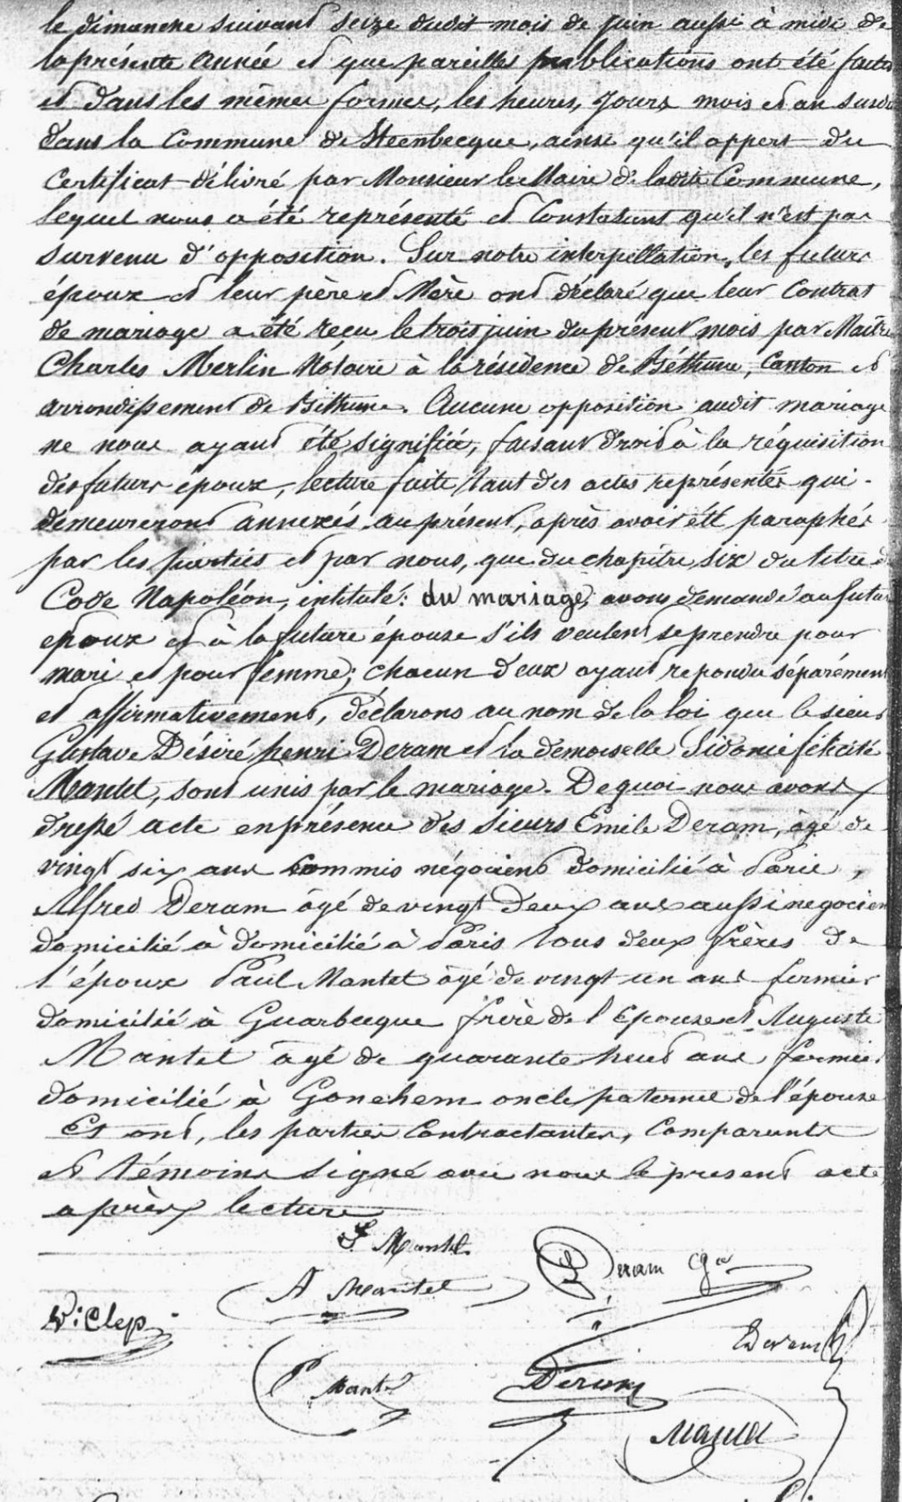 le dimanche suivant seize dudit mois de juin aussi à midi de
la présente année et que pareilles publications ont été faites
et dans les mêmes formes, les heures, jours, mois et an susdits
dans la Commune de Steenbecque, ainsi qu'il appert du
Certificat délivré par Monsieur le Maire de ladite Commune,
lequel nous a été représenté et Constatant qu'il n'est pas
survenu d'opposition. Sur notre interpellation, les futurs
époux et leur père et Mère ont déclaré que leur Contrat
de mariage a été reçu le trois juin du présent mois par Maître
Charles Merlin Notaire à la résidence de Béthune, Canton et
arrondissement de Béthune. Aucune opposition audit mariage
ne nous ayant été signifiée, faisant droit à la réquisition
des futurs époux, lecture faite tant des actes représentés qui
demeureront annexés au présent, après avoir été paraphés
par les parties et par nous, que du chapitre six du titre du
Code Napoléon, intitulé: du mariage, avons demandé au futur
époux et à la future épouse s'ils veulent se prendre pour
mari et pour femme; chacun d'eux ayant repondu séparément
et affirmativement, déclarons au nom de la loi que le sieur
Gustave Désiré henri Deram et la demoiselle Sidonie félicité
Mantel, sont unis par le mariage. De quoi nous avons
dressé acte en présence des sieurs Emile Deram, âgé de
vingt six ans commis négociant domicilié à Paris,
Alfred Deram âgé de vingt deux ans aussi negociant
domicilié à domicilié à Paris tous deux frères de
l'époux Paul Mantel âgé de vingt un ans fermier
domicilié à Guarbecque frère de l'Epouse et Auguste
Mantel âgé de quarante heut ans, fermier
domicilié à Gonehem oncle paternel de l'épouse
Et ont, les parties Contractantes, Comparents
et témoins signé avec nous le present acte
après lecture
S Mantel
A Mantel
Deram
W: Clep
Deram
P Mantel
Deram
Mantel